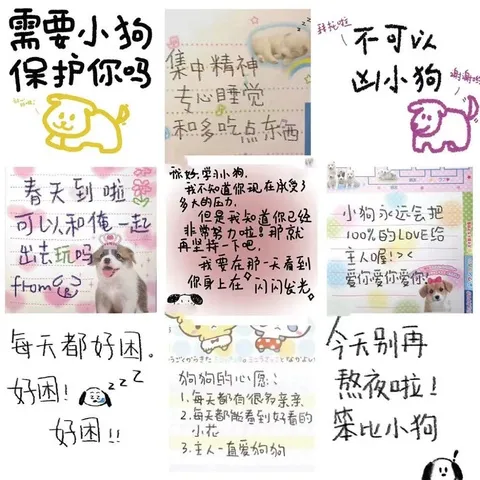 需要小狗
保护你吗
集中精神
专心睡觉
和多吃点东西
拜托啦
不可以
凶小狗
谢谢啦
春天到啦
可以和俺一起
出去玩吗
from
你好,学习小狗.
我不知道你现在承受了
多大的压力,
但是我知道你已经
非常努力啦!那就
再坚持一下吧,
我要在那一天看到
你身上在闪闪发光。
小狗永远会把
100%的LOVE给
主人喔!><
爱你爱你爱你!
每天都好困.
好困!zzz
好困!!
狗狗的心愿:
1.每天都有很多亲亲
2.每天都能看到好看的
小花
3.主人一直爱狗狗
今天别再
熬夜啦!
笨比小狗